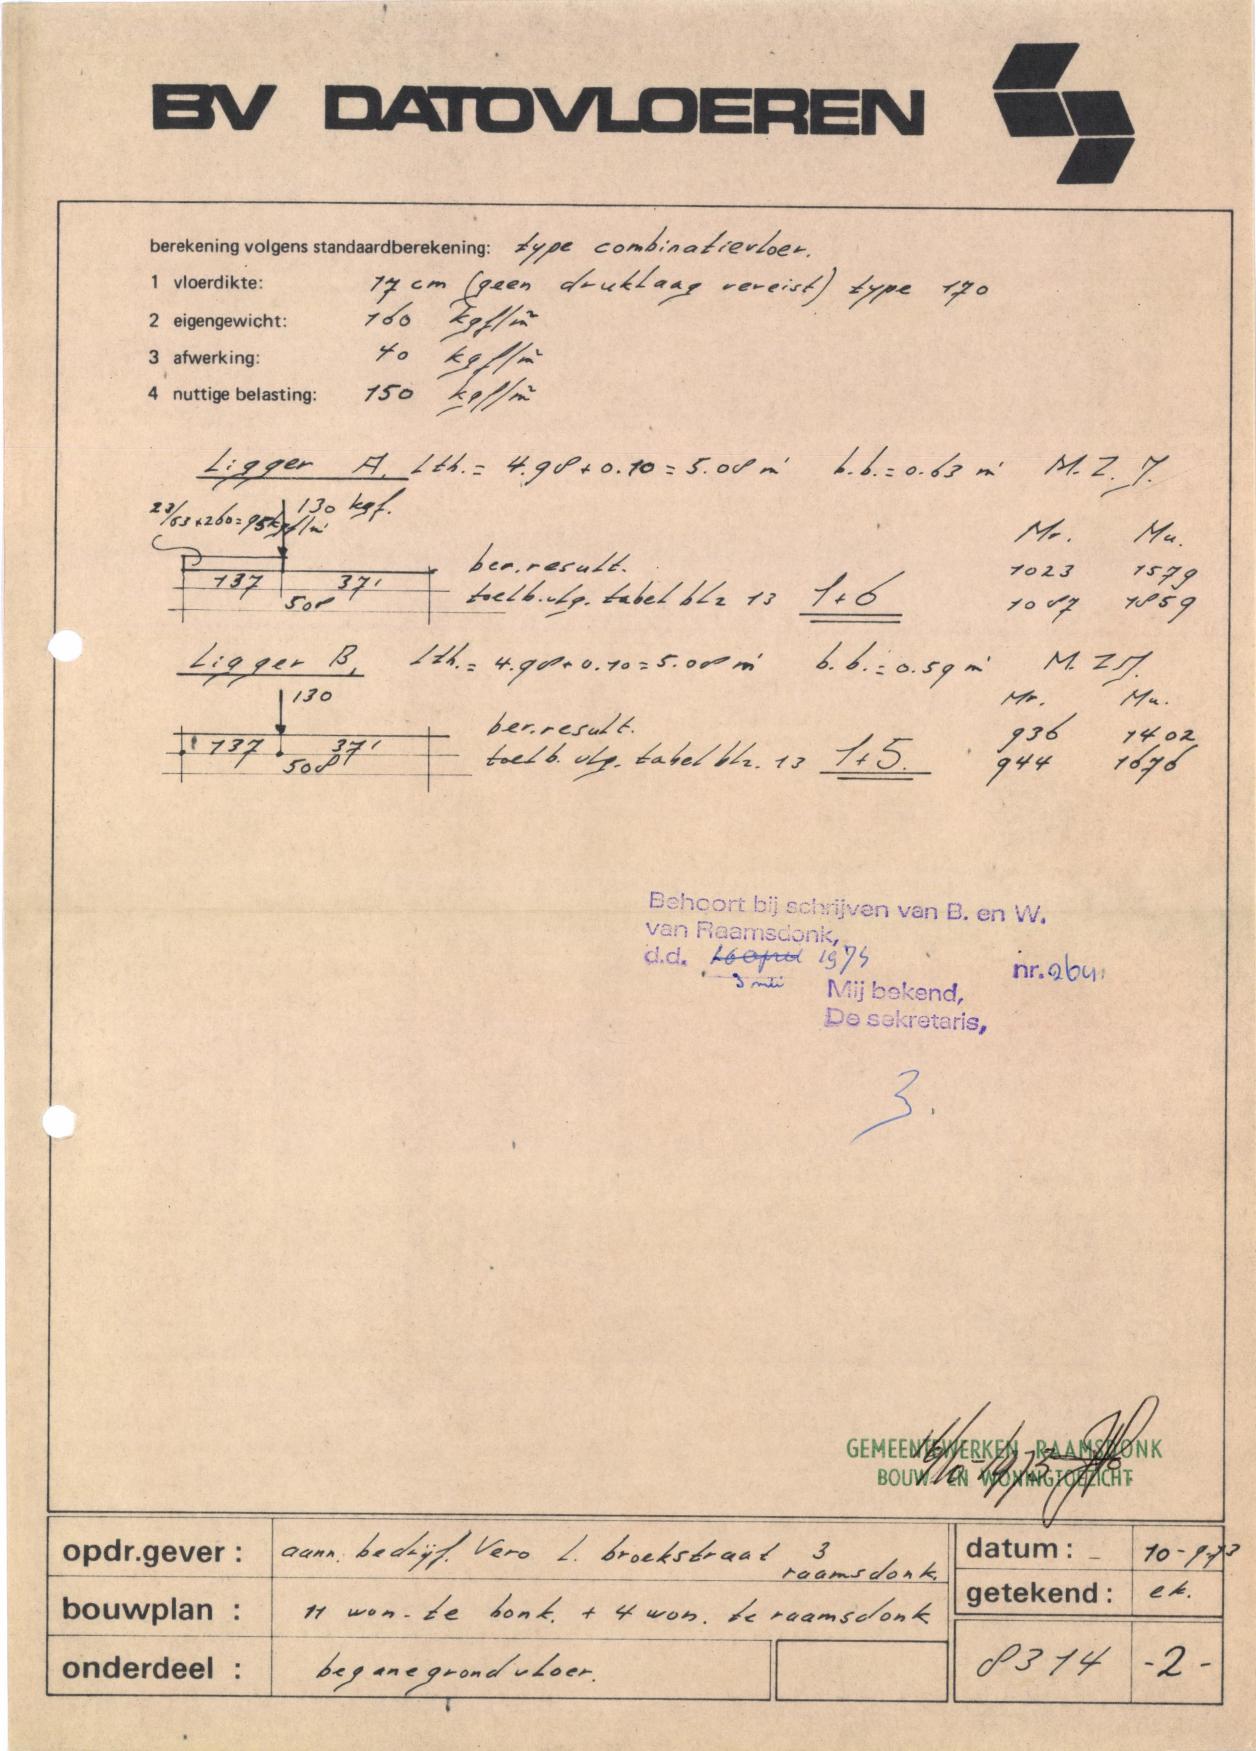 BV DATOVLOEREN
berekening volgens standaardberekening: type combinatievloer.
1 vloerdikte: 17 cm (geen druklaag vereist) type 170
2 eigengewicht: 160 kgf/m²
3 afwerking: 40 kgf/m²
4 nuttige belasting: 150 kgf/m²
Ligger A, Lth.= 4.98+0.10=5.08 m' b.b.=0.63 m' M.Z.J.
130 kgf.
Mr. Mu.
ber.result. 1023 1579
137 371
toelb. vlg. tabel blz 13 1+6 1087 1859
508
Ligger B, Lth.= 4.98+0.10=5.08 m' b.b.=0.59 m' M.ZJ.
130 Mr. Mu.
ber.result. 936 1402
137 371
toelb. vlg. tabel blz. 13 1+5. 944 1676
508
Behoort bij schrijven van B. en W.
van Raamsdonk,
d.d. 1974 nr.
3 mei
Mij bekend,
De sekretaris,
3.
GEMEENTEWERKEN RAAMSDONK
BOUW- EN WONINGTOEZICHT
opdr.gever : aann. bedrijf. Vero L. broekstraat 3 datum : 10-9-73
raamsdonk.
getekend : ek.
bouwplan : 11 won. te honk. + 4 won. te raamsdonk
onderdeel : beganegrondvloer. 8314 -2-